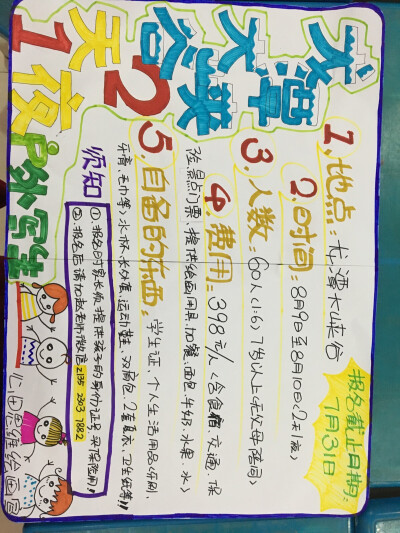 龙潭大峡谷
2天1夜
户外写生
1.地点：龙潭大峡谷
2.时间：8月9日至8月10日（2天1夜）
3.人数：60人（小6）7岁以上（无父母陪同）
4.费用：398元/人（含食宿、交通、保
险、景点门票、提供绘画用具、加餐、面包、牛奶、水果、水）
5.自备的东西：学生证、个人生活用品（牙刷、
牙膏、毛巾等）水杯、长外套、运动鞋、双肩包、2套夏衣、卫生纸等
须知
①报名时家长须提供孩子的身份证号（买保险用）
②报名后请加赵老师微信 2135 2803 7882
报名截止日期：
7月31日
仁田思维绘画屋